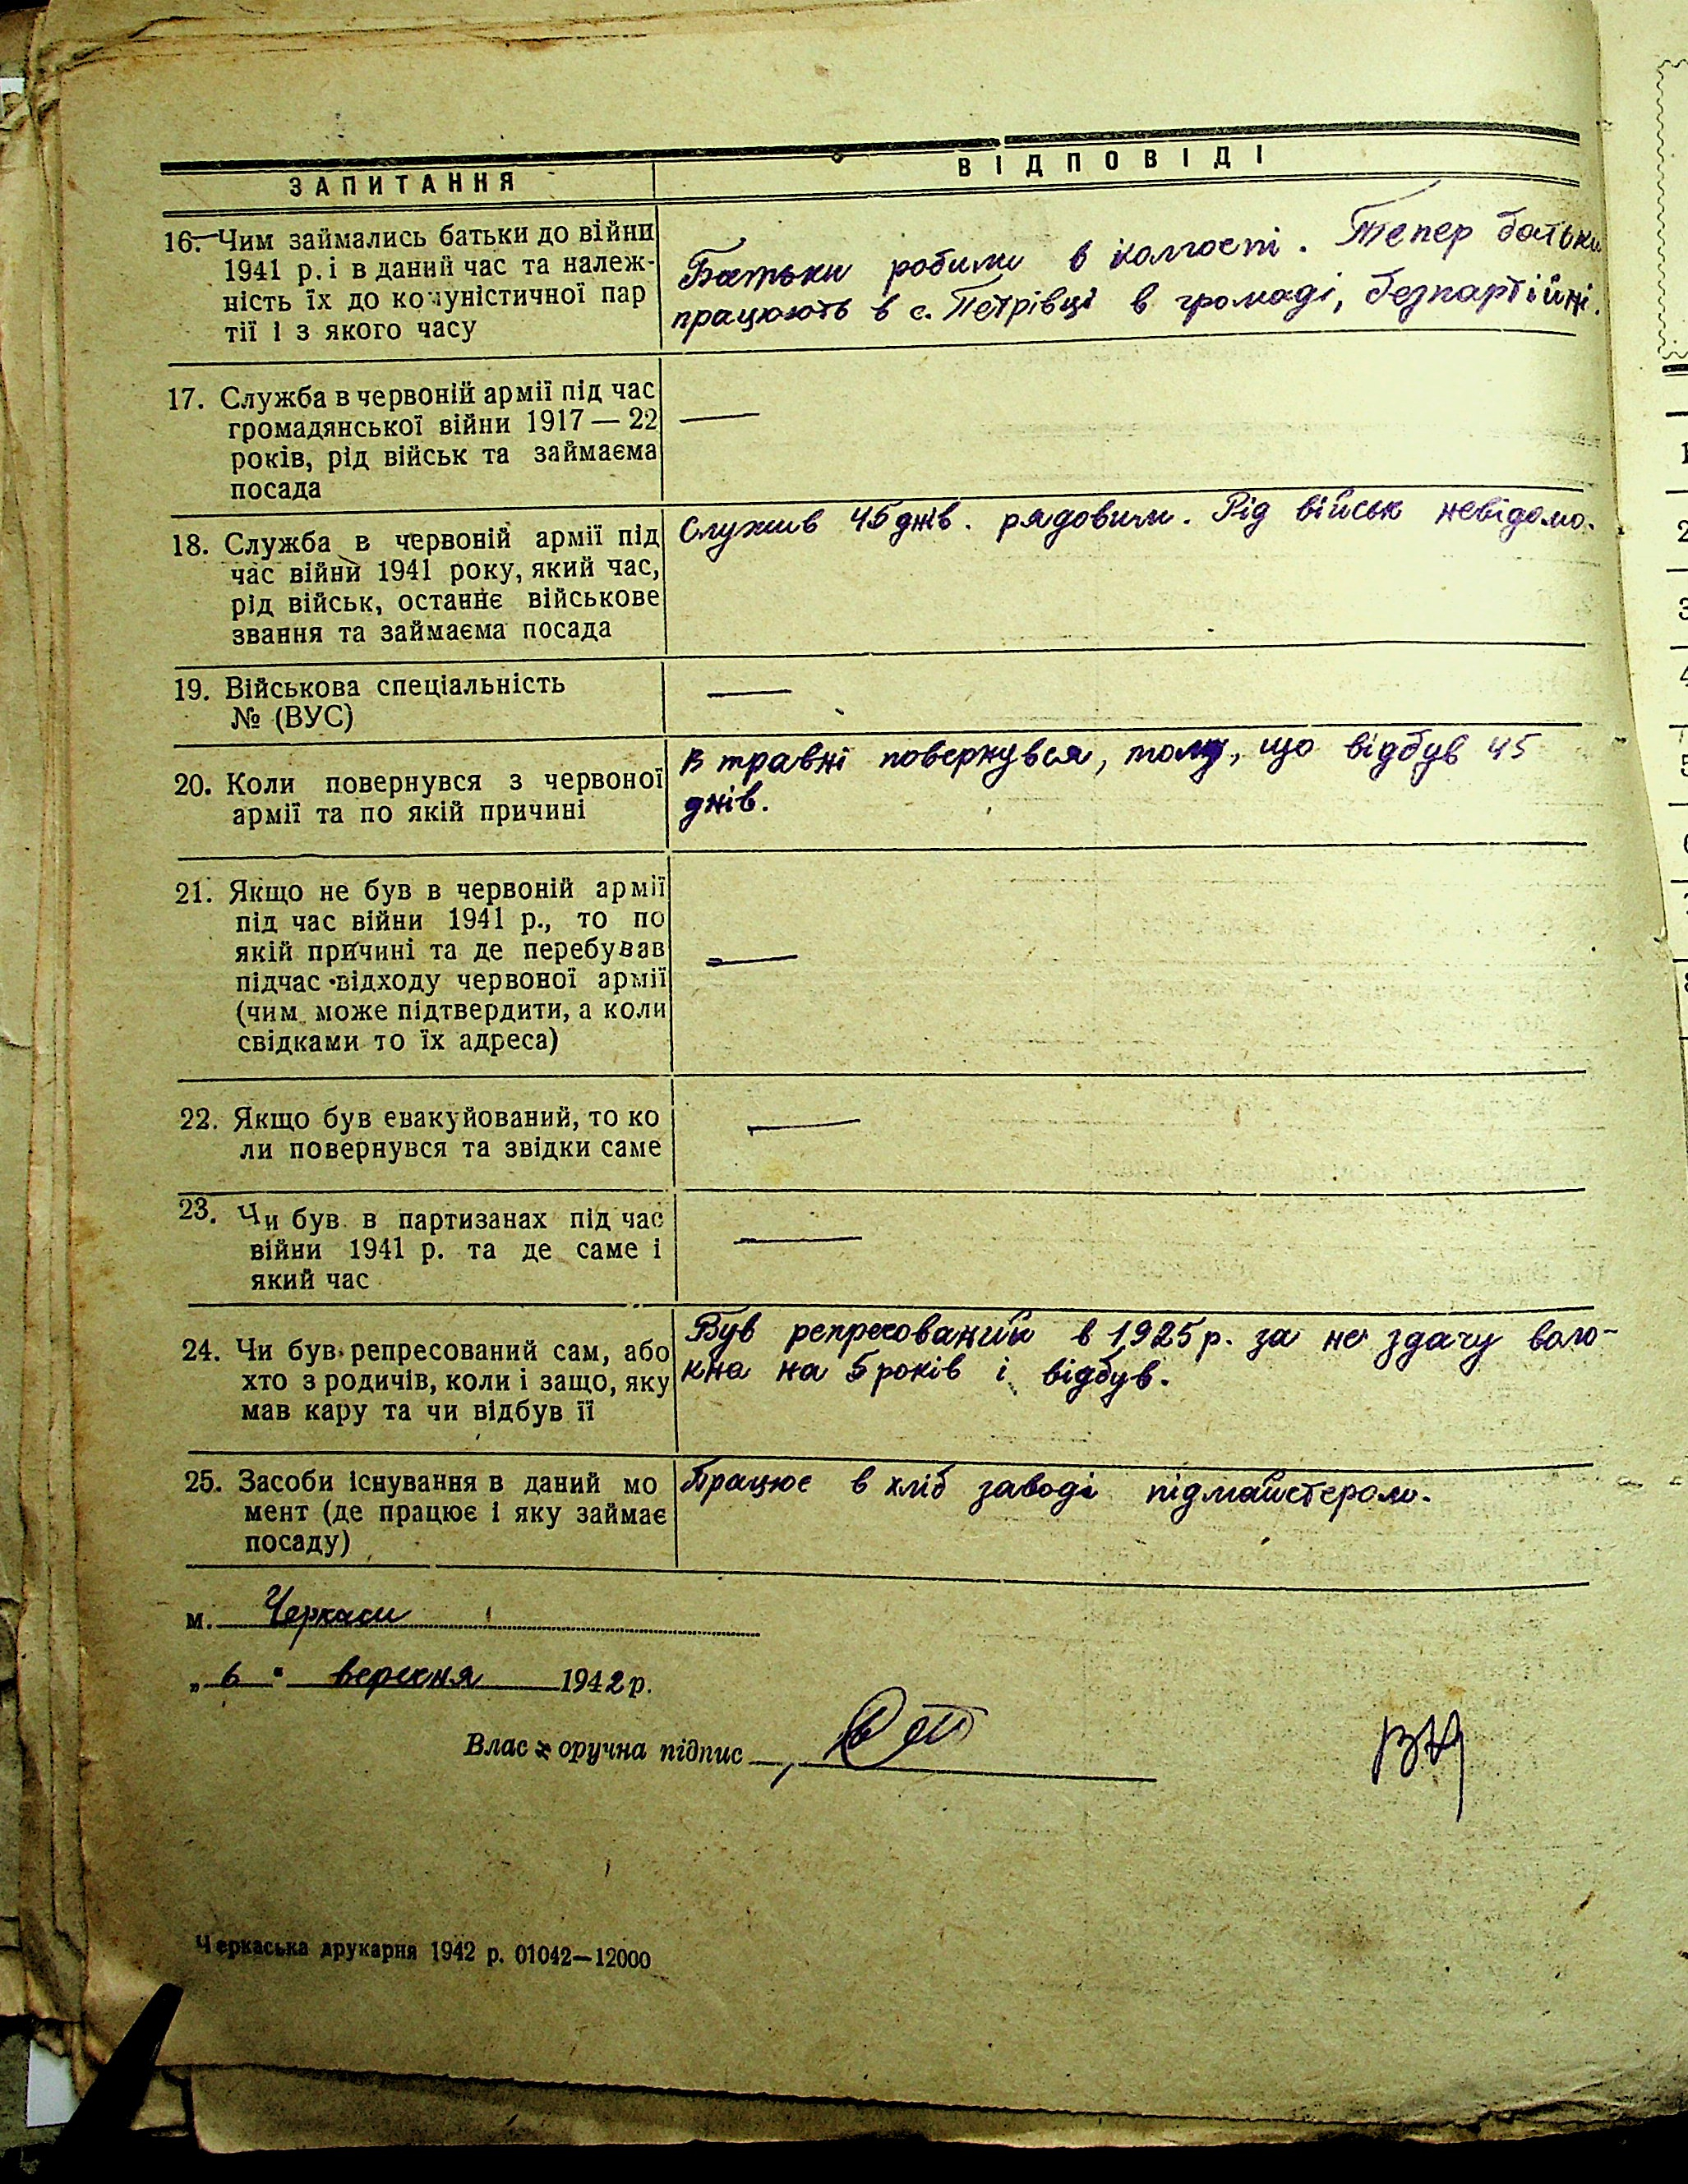 ЗАПИТАННЯ
ВІДПОВІДІ
16. Чим займались батьки до війни
1941 р. і в даний час та належ-
ність їх до комуністичної пар
тії і з якого часу
Батьки робили в колгоспі. Тепер батьки
працюють в с. Петрівці в громаді, безпартійні.
17. Служба в червоній армії під час
громадянської війни 1917 — 22
років, рід військ та займаєма
посада
—
18. Служба в червоній армії під
час війни 1941 року, який час,
рід військ, останнє військове
звання та займаєма посада
Служив 45 днів. рядовим. Рід військ невідомо.
19. Військова спеціальність
№ (ВУС)
—
20. Коли повернувся з червоної
армії та по якій причині
В травні повернувся, тому, що відбув 45
днів.
21. Якщо не був в червоній армії
під час війни 1941 р., то по
якій причині та де перебував
підчас відходу червоної армії
(чим може підтвердити, а коли
свідками то їх адреса)
—
22. Якщо був евакуйований, то ко
ли повернувся та звідки саме
—
23. Чи був в партизанах під час
війни 1941 р. та де саме і
який час
—
24. Чи був репресований сам, або
хто з родичів, коли і защо, яку
мав кару та чи відбув її
Був репресований в 1925 р. за не здачу воло-
кна на 5 років і відбув.
25. Засоби існування в даний мо
мент (де працює і яку займає
посаду)
Працює в хліб заводі підмайстером.
м. Черкаси
„ 6 " вересня 1942 р.
Власноручна підпис
Черкаська друкарня 1942 р. 01042—12000
1
2
3
4
5
6